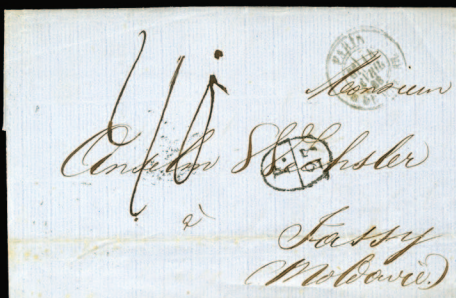 PARIS
Monsieur
Anselm Wechsler
à
Jassy
(Moldavie)